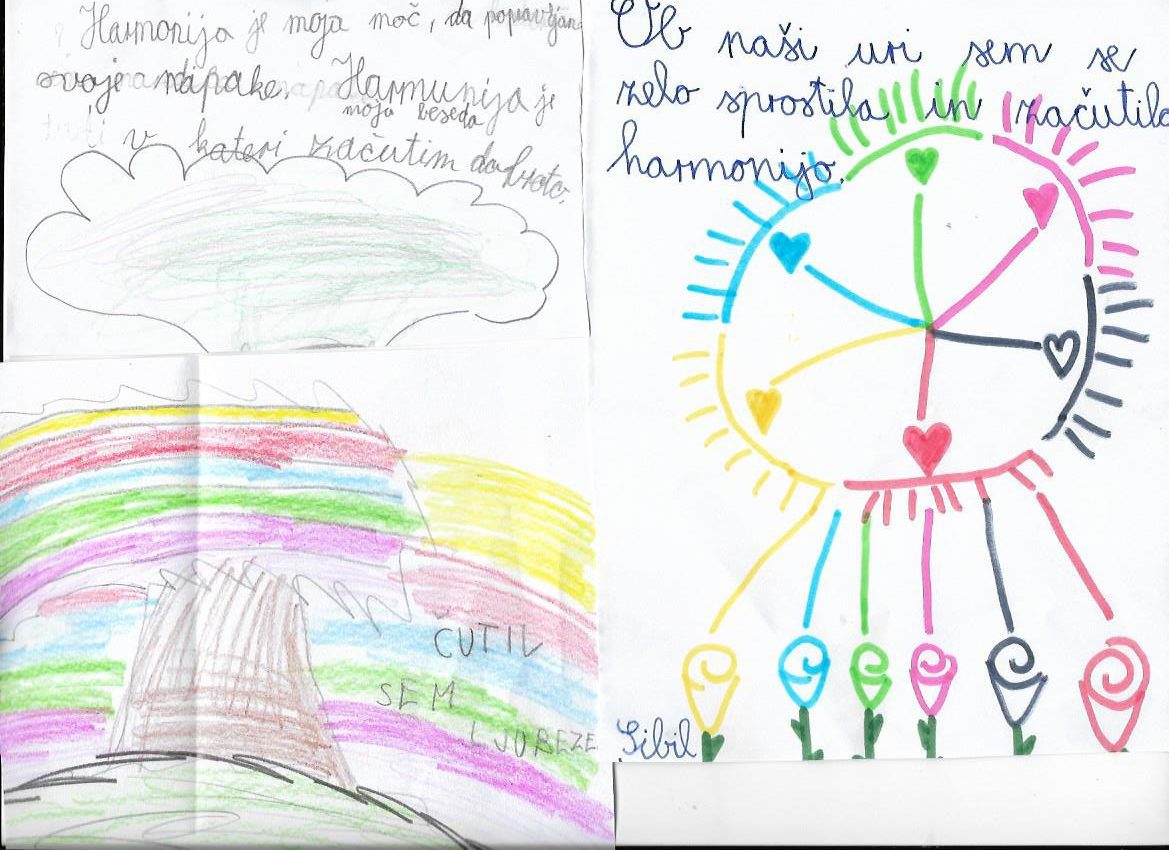 Harmonija je moja moč, da popravljam
svoje napake. Harmunija je
moja beseda
v kateri začutim dobroto.
Ob naši uri sem se
zelo sprostila in začutila
harmonijo.
ČUTIL
SEM
LJUBEZE
Sibil